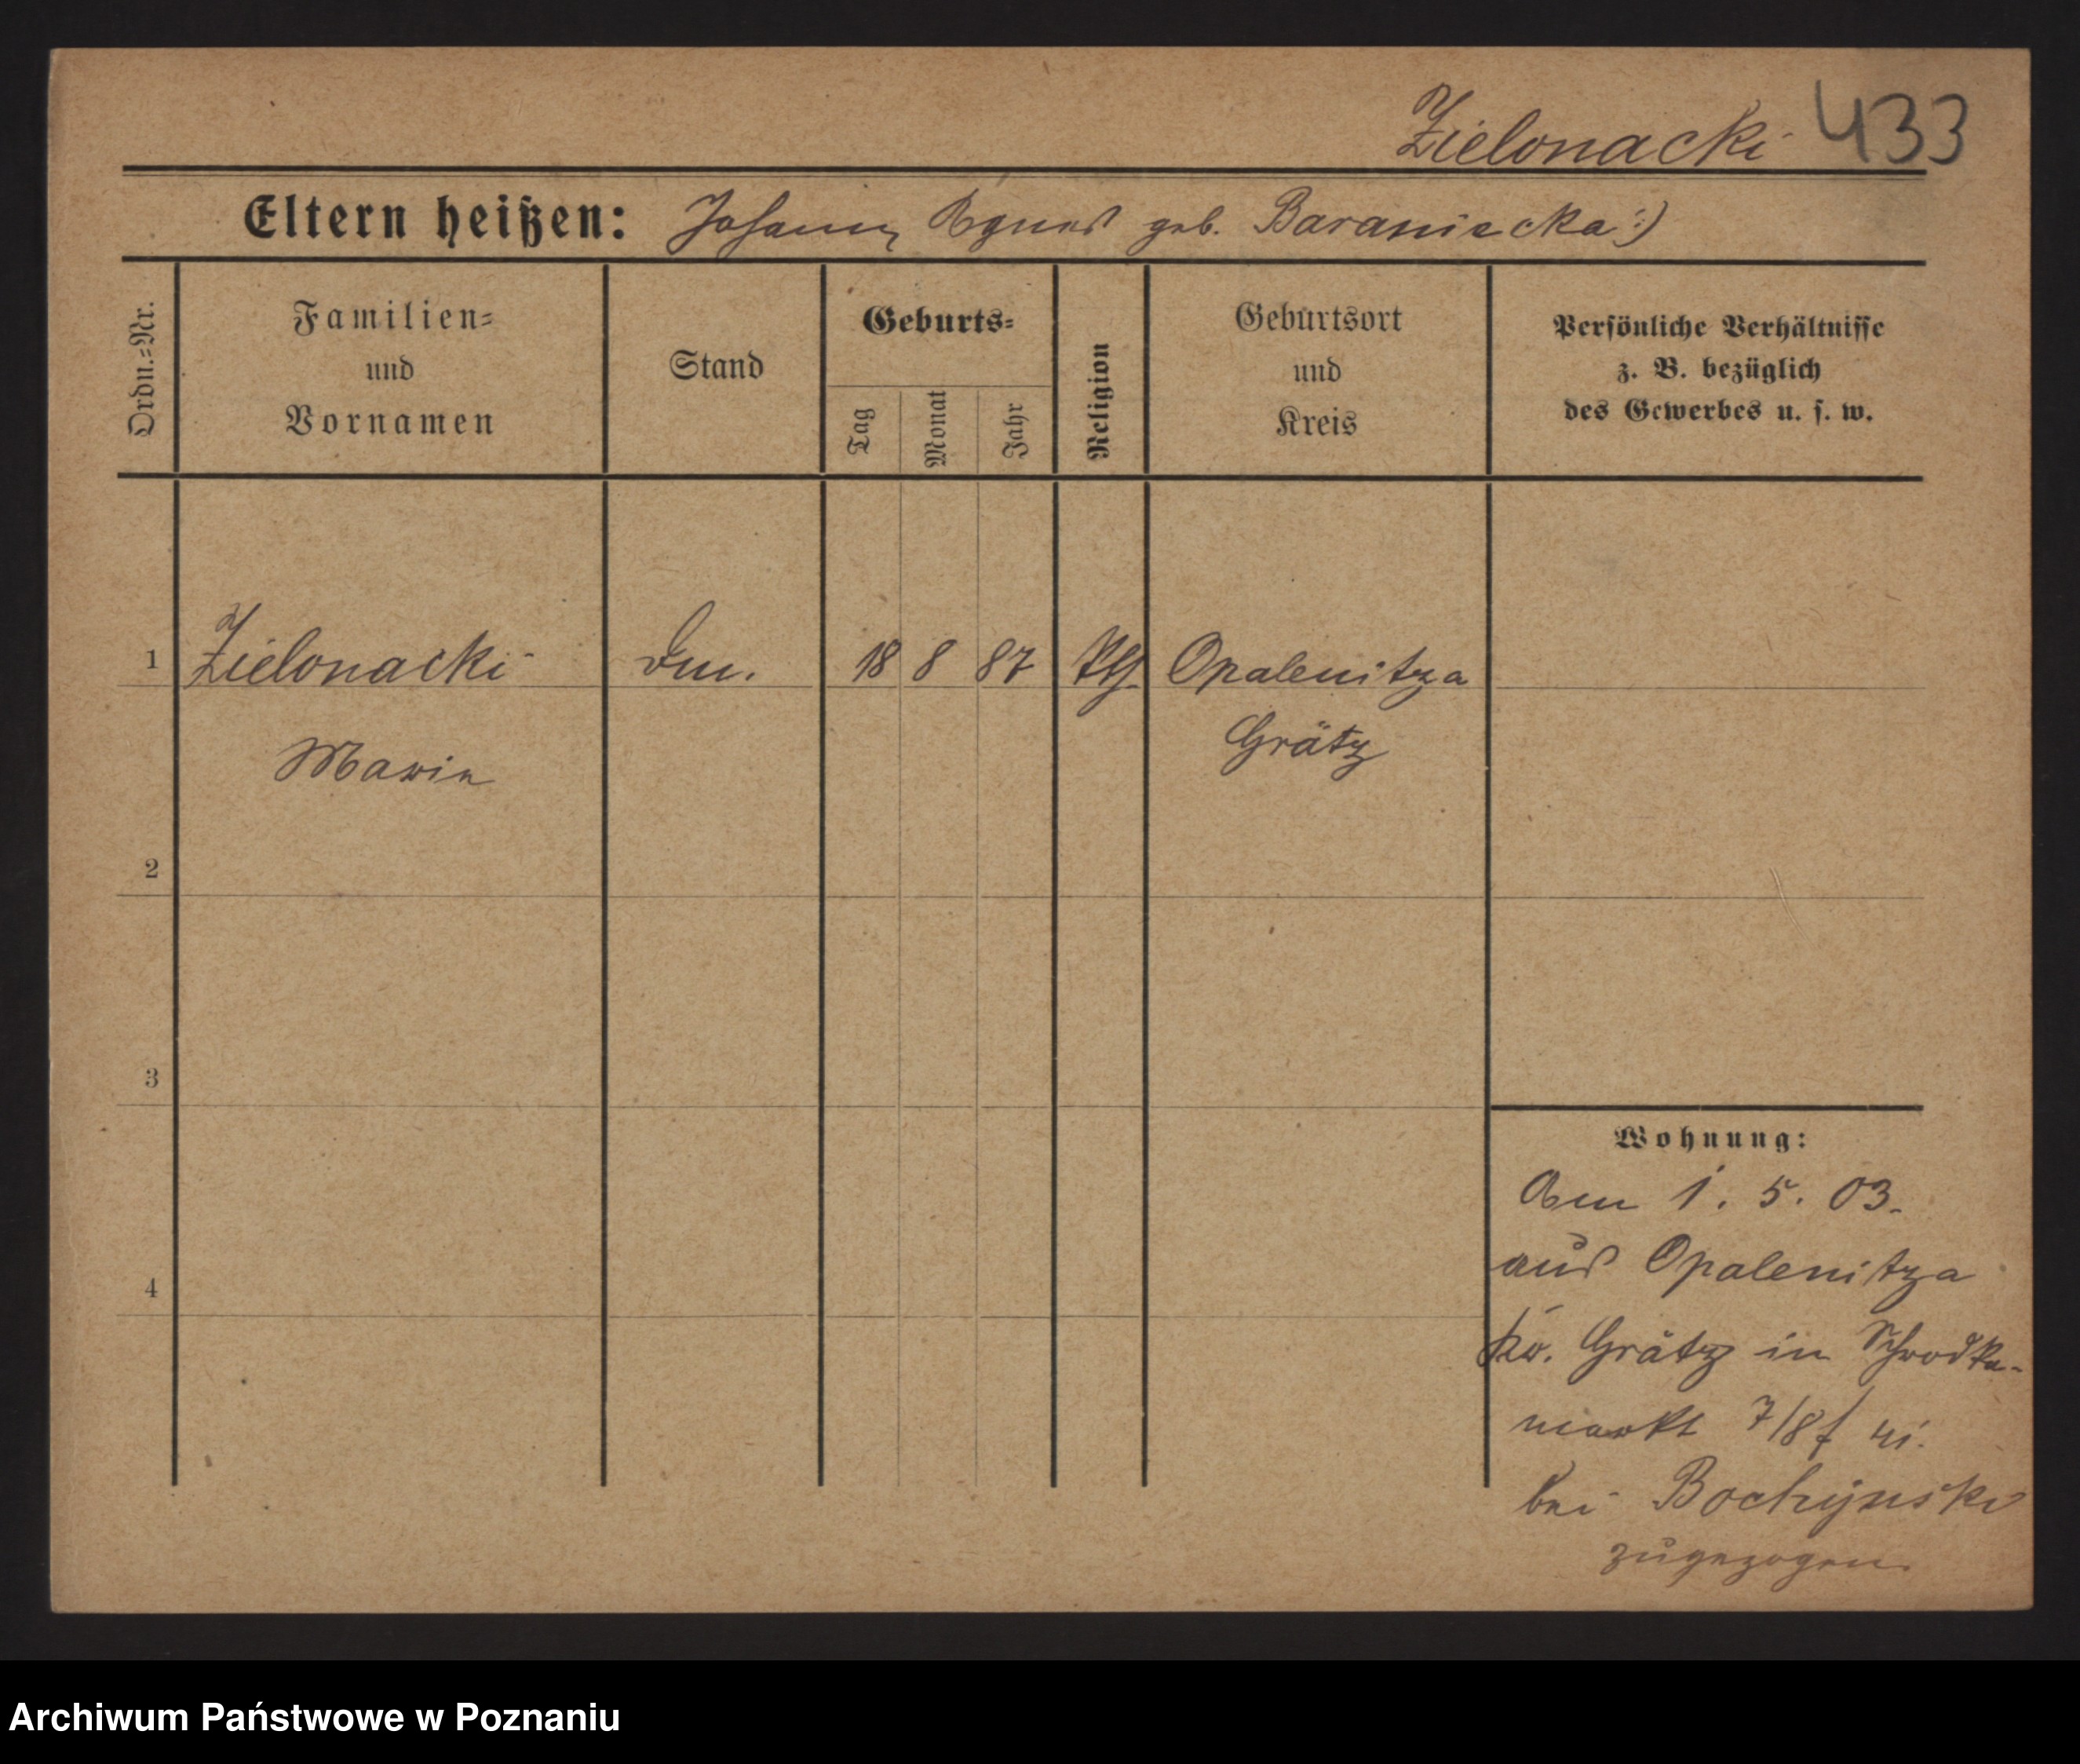 Zielonacki 433
Eltern heißen: Johann, Agnes geb. Baraniecka :)
Ordn.=Nr.
Familien=
und
Vornamen
Stand
Geburts=
Tag
Monat
Jahr
Religion
Geburtsort
und
Kreis
Persönliche Verhältnisse
z. B. bezüglich
des Gewerbes u. s. w.
1 Zielonacki 18 8 87 kth. Opalenitza
Marie Grätz
2
3
4
Wohnung:
Am 1. 5. 03.
aus Opalenitza
Kr. Grätz in Schrodka-
markt 7/8
bei Bochynski
zugezogen.
Archiwum Państwowe w Poznaniu